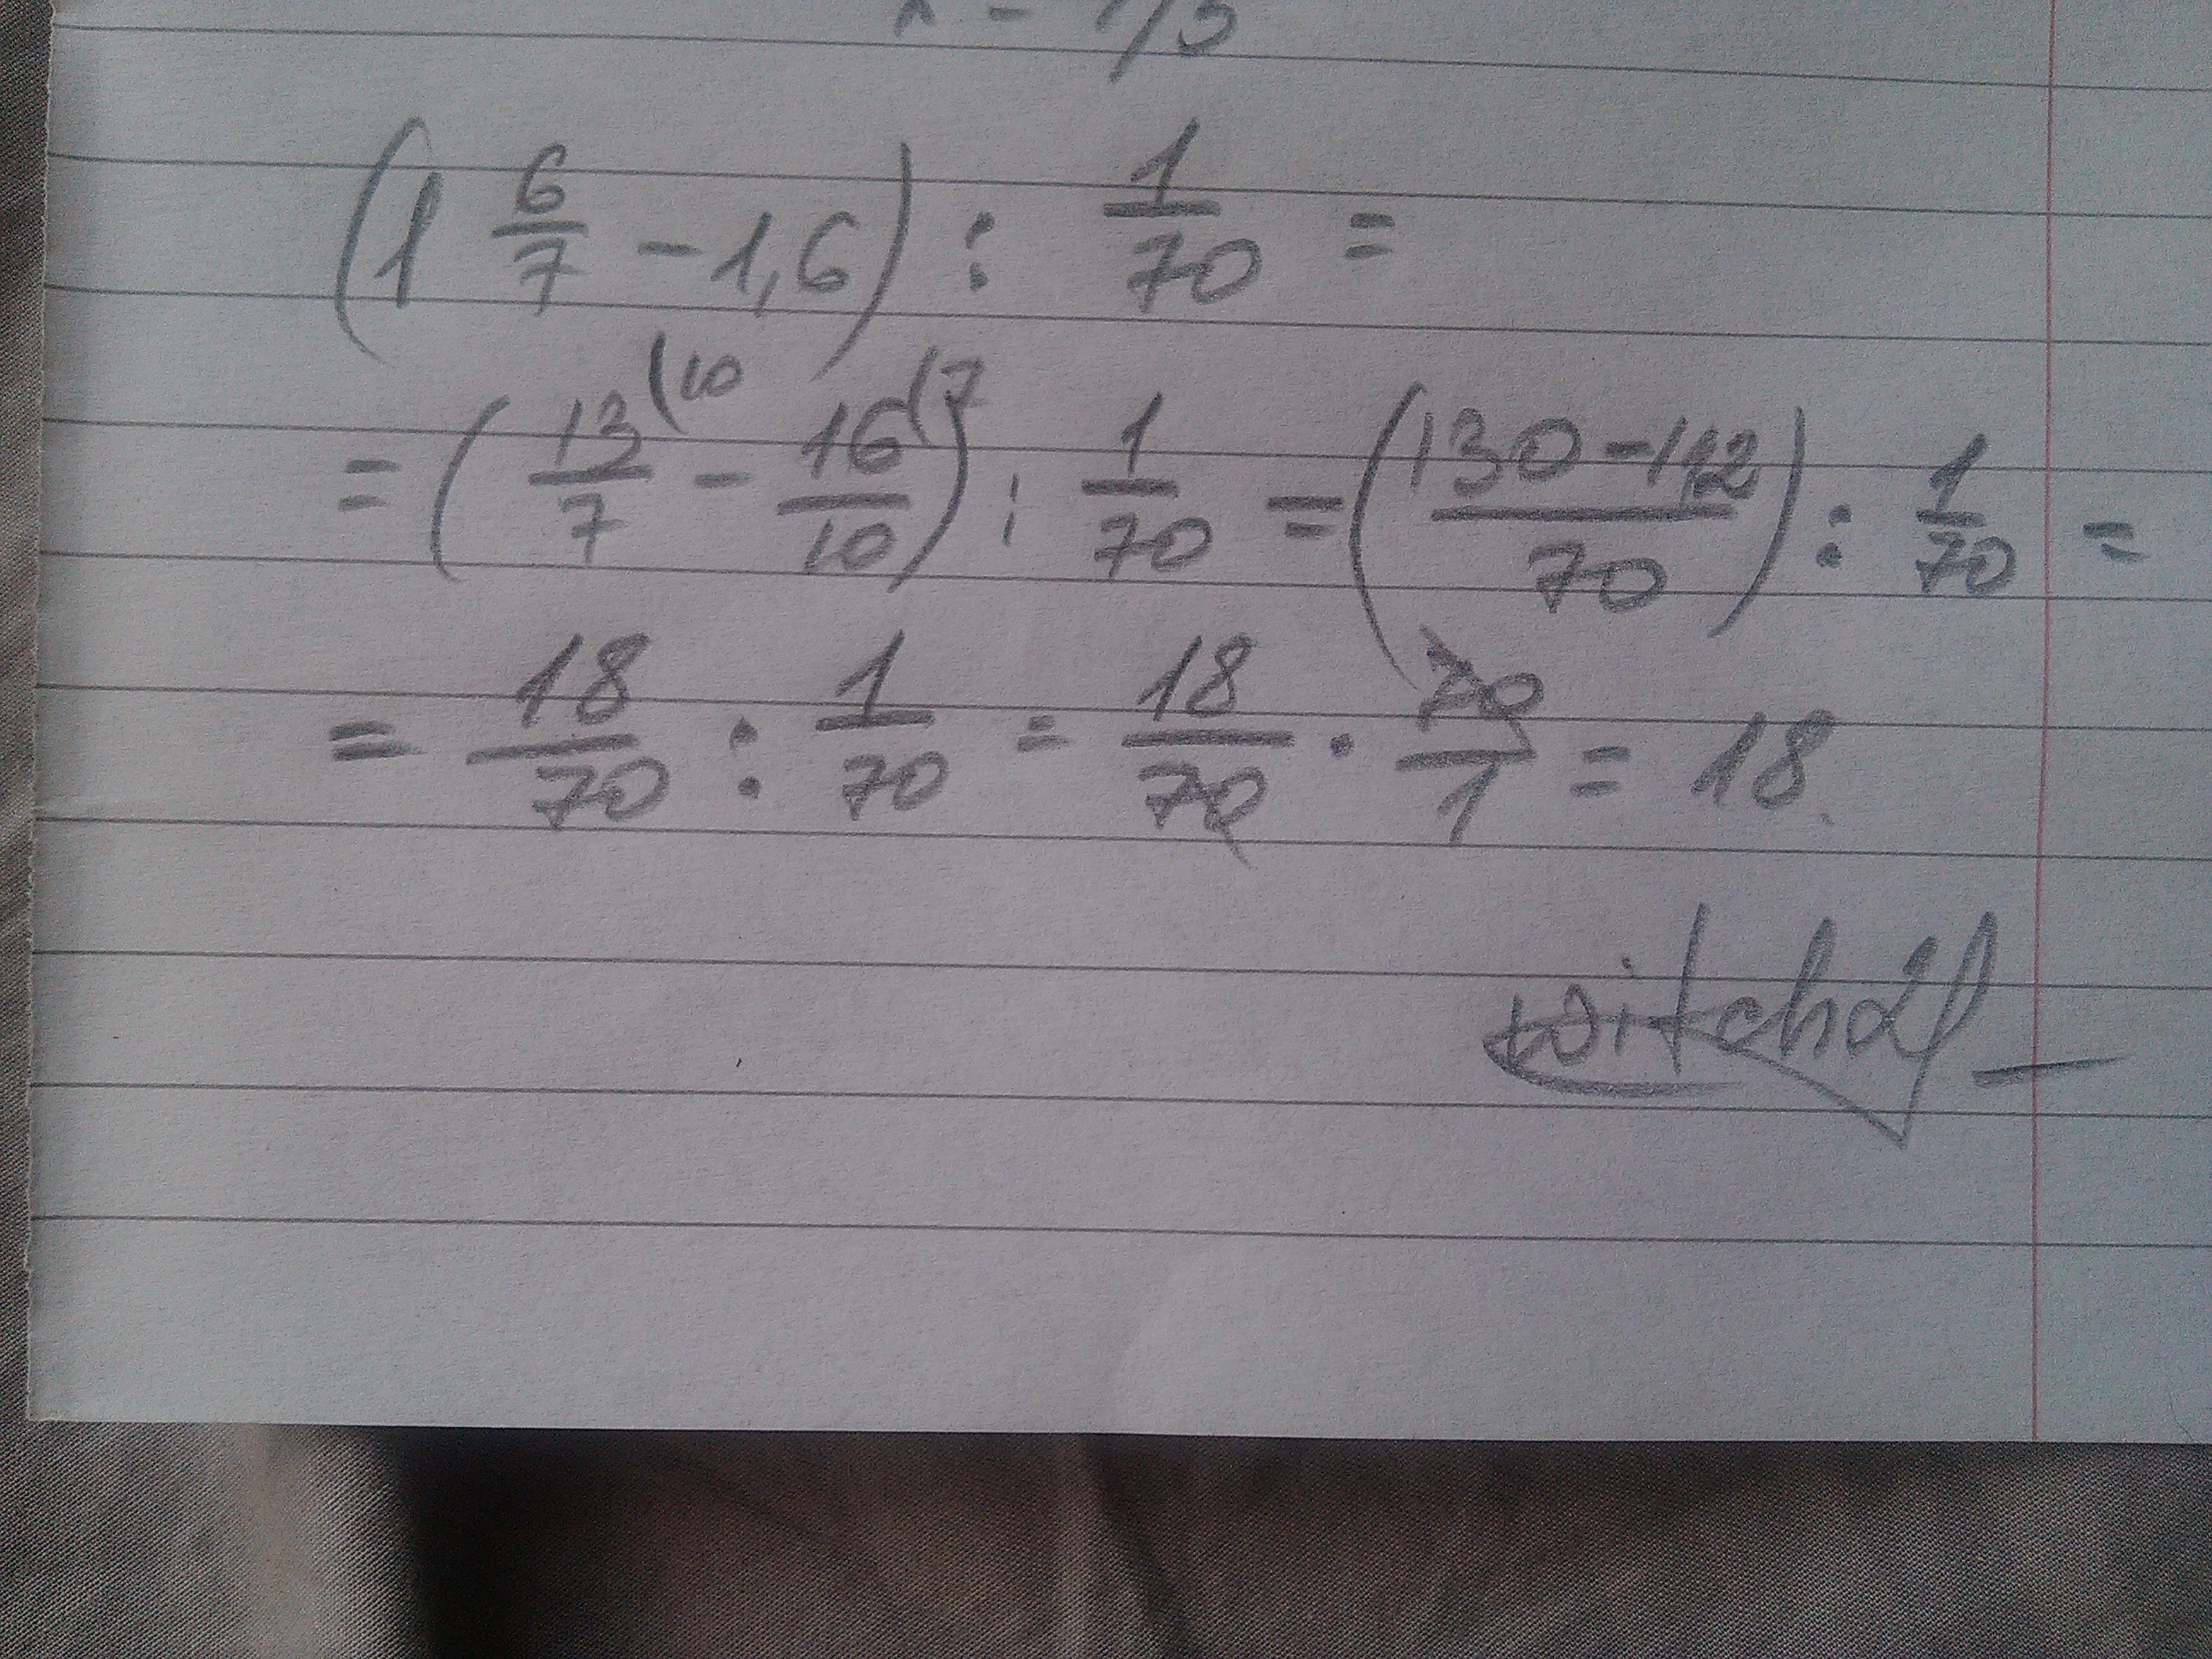 (1 6/7 - 1,6) : 1/70 =
= (13/7 (10 - 16/10 (7) : 1/70 = (130-112/70) : 1/70 =
= 18/70 : 1/70 = 18/70 · 70/1 = 18.